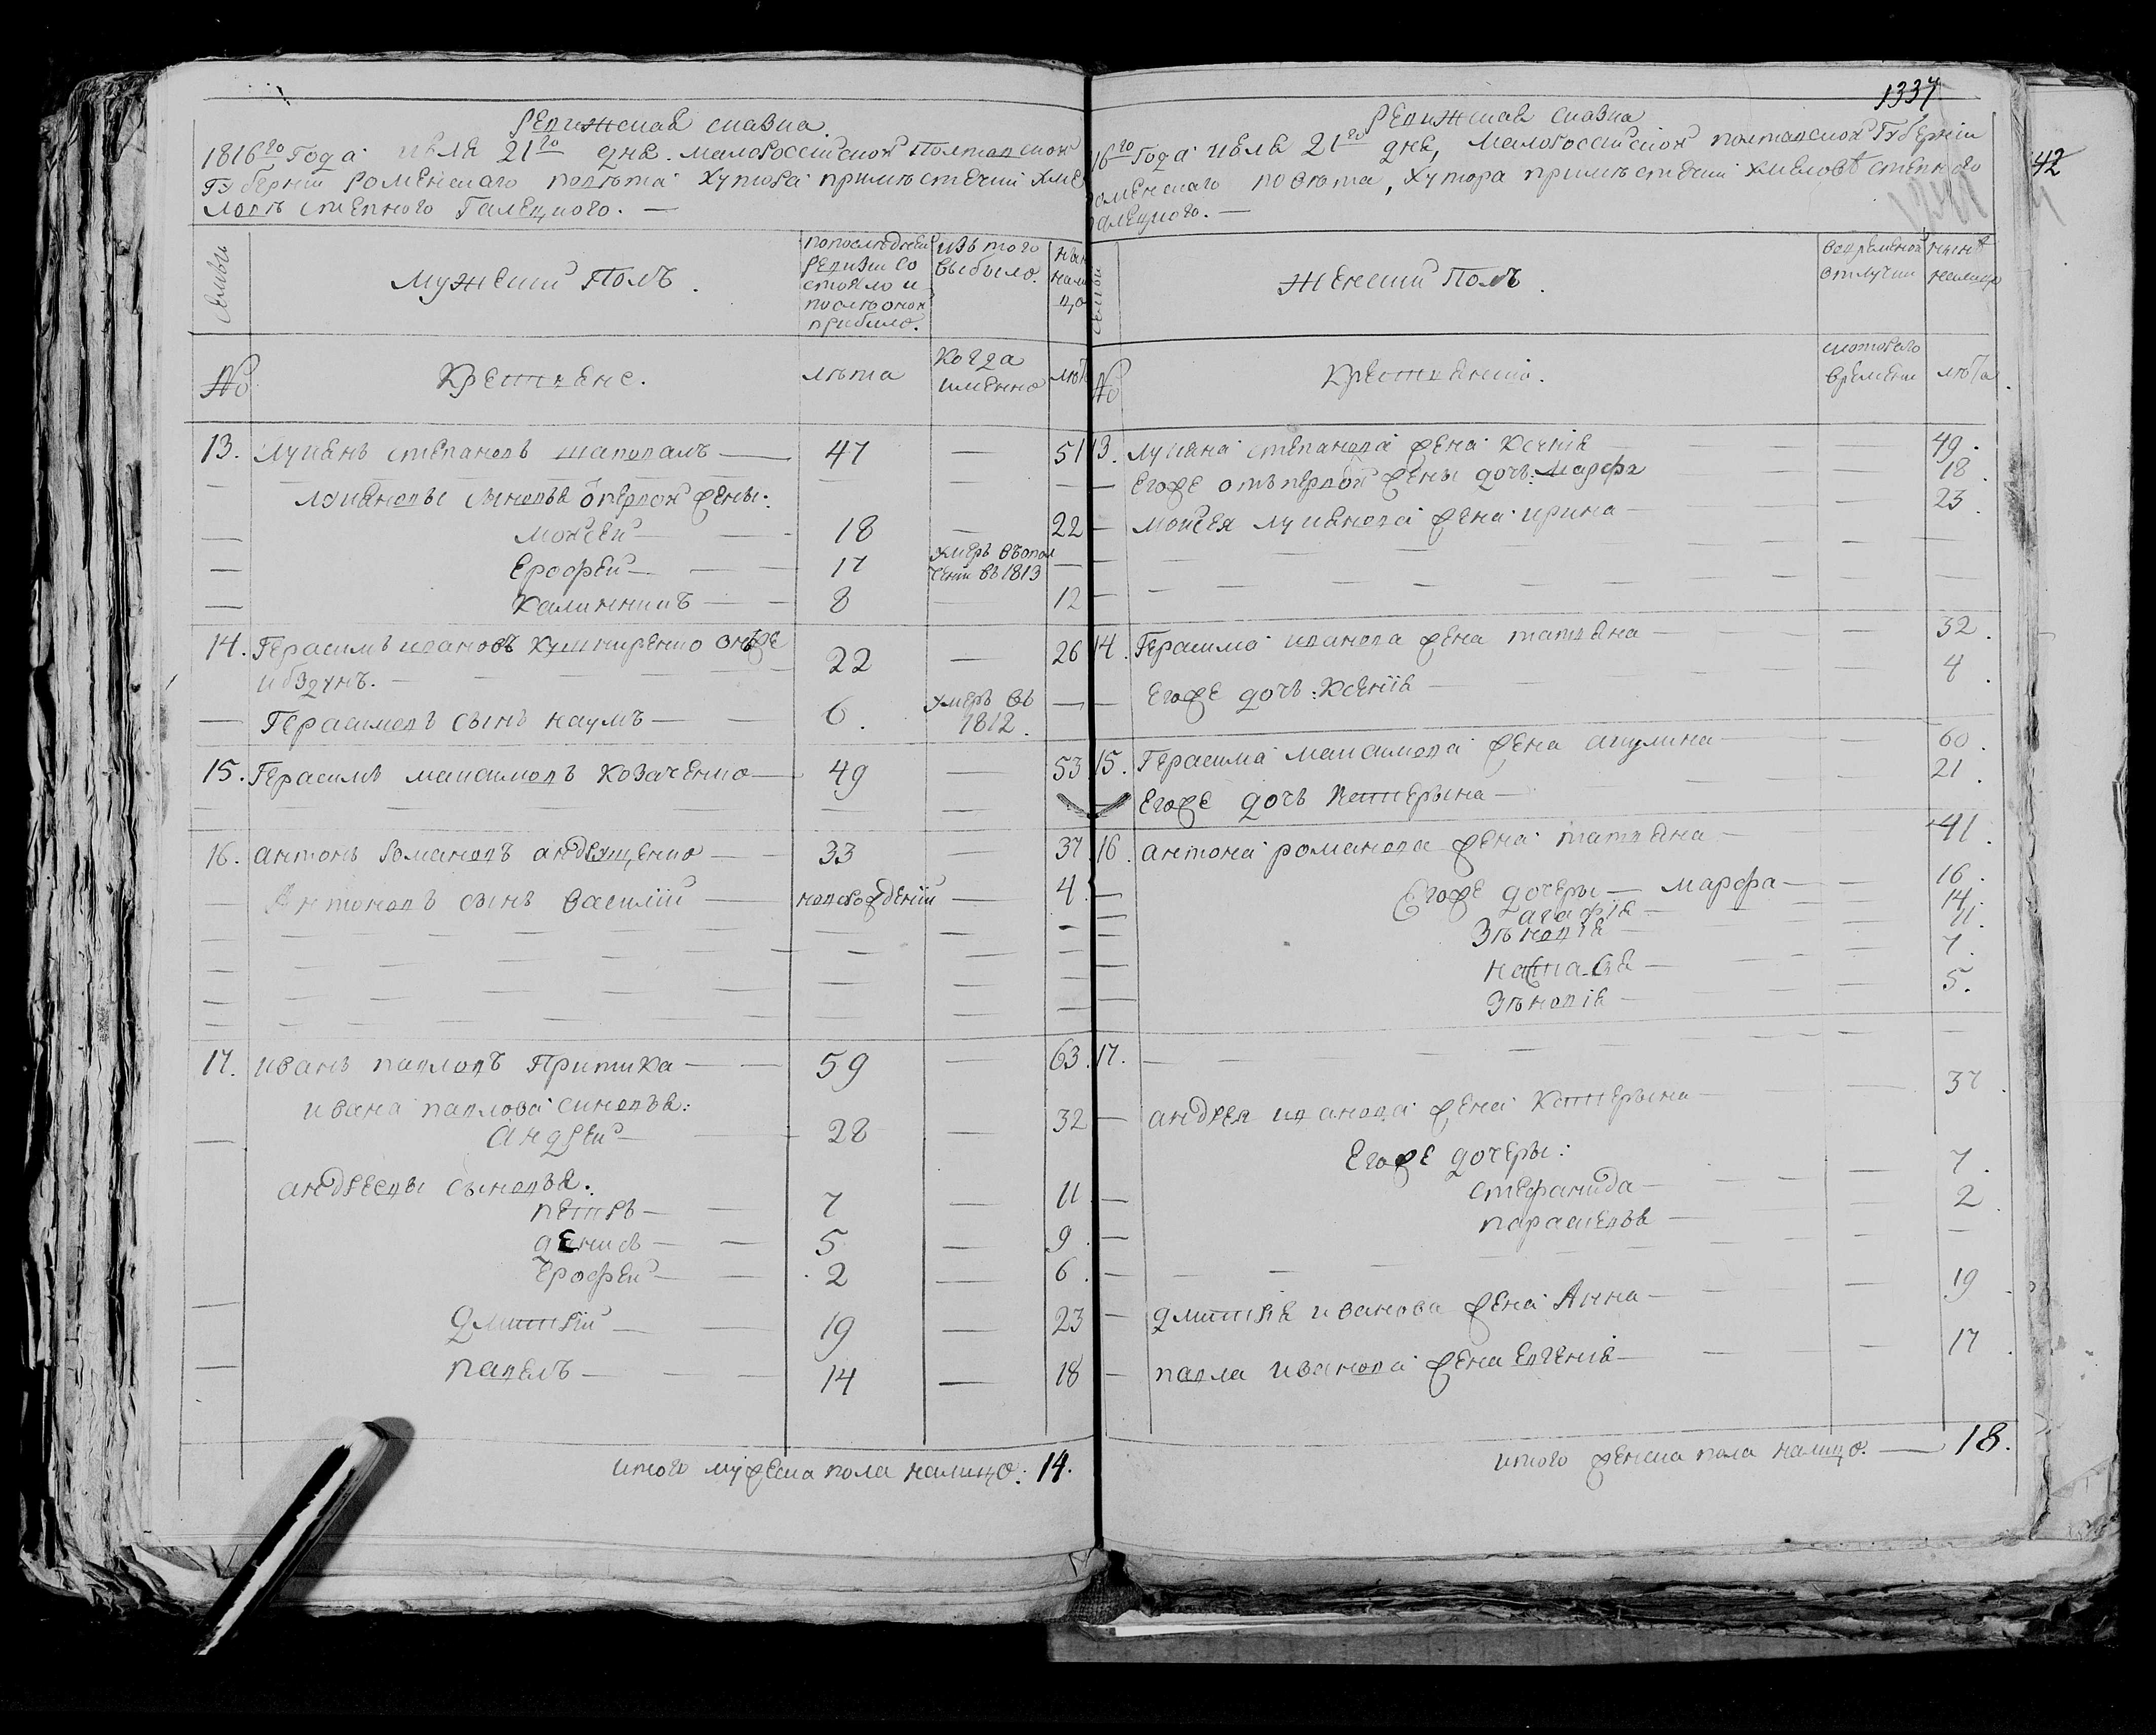 Ревижская сказка.
1816го Года июля 21го дня. малороссийской Полтавской
Губернии роменскаго повѣта хутора примѣстечки хме
ловѣ степного Галецкого. —
Семьи
Мужеский Полъ.
попоследней ревизии состояло и послѣоной прибыло.
изъ того выбыло.
нали цо
№
Крестьяне.
лѣта
Когда именно
лѣт
13. Лукьянъ степановъ шаповалъ — 47 — 51
Лукьяновы сыновья отпервой жены:
Мойсей — 18 — 22
Ерофей — 17 умеръ вополчении въ 1813 —
Калинникъ — 8 — 12
14. Герасимъ ивановъ Кушниренко онже
22 — 26
— Герасимовъ сынъ наумъ — 6. умеръ въ 1812. —
15. Герасимъ максимовъ Козаченко — 49 — 53
16. антонъ Романовъ андрущенко — 33 — 37
— Антоновъ сынъ василий — новорожденний — 4
17. иванъ павловъ Притика — 59 — 63
ивана павлова синовья:
— андрей — 28 — 32
андреевы сыновья:
петръ — 7 — 11
денисъ — 5 — 9
Ерофей — 2 — 6
— Дмитрий — 19 — 23
— павелъ — 14 — 18
итого мужеска пола налицо: 14.
1337
Ревижская сказка
16го Года июля 21го дня, малороссийской полтавской Губернии
оменскаго повѣта, хутора примѣстечки хмеловѣ степного
алецкого. —
42
Семьи
Женский Полъ.
вовременной отлучки
нынѣ налицо
№
Крестьянки.
скотораго времени
лѣта.
13. лукьяна степанова жена Ксения — 49.
— Егоже отъпервой жены дочь: Марфа — 18
— мойсея лукьянова жена ирина — 23.
14. Герасима иванова жена татьяна — 32.
— Егоже дочь: Ксения — 4.
15. Герасима максимова жена акулина — 60.
— Егоже дочь Катерына — 21.
16. антона романова жена татьяна — 41.
— Егоже дочеры — марфа — 16.
агафия — 14.
Зѣновия — 11.
наталья — 7.
Зѣновия — 5.
17. —
— андрея иванова жена Катерына — 37.
Егоже дочеры:
— стефанида — 7.
— парасковья — 2.
— дмитрия иванова жена Анна — 19.
— павла иванова жена Евгения — 17.
итого женска пола налицо. — 18.